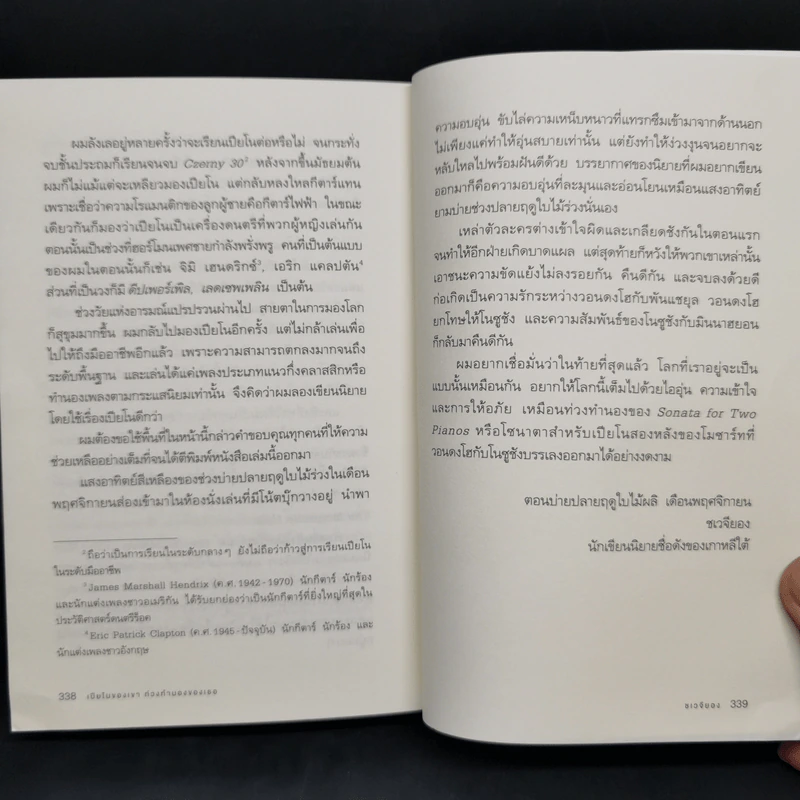 ผมลังเลอยู่หลายครั้งว่าจะเรียนเปียโนต่อหรือไม่ จนกระทั่ง
จบชั้นประถมก็เรียนจนจบ Czerny 30² หลังจากขึ้นมัธยมต้น
ผมก็ไม่แม้แต่จะเหลียวมองเปียโน แต่กลับหลงใหลกีตาร์แทน
เพราะเชื่อว่าความโรแมนติกของลูกผู้ชายคือกีตาร์ไฟฟ้า ในขณะ
เดียวกันก็มองว่าเปียโนเป็นเครื่องดนตรีที่พวกผู้หญิงเล่นกัน
ตอนนั้นเป็นช่วงที่ฮอร์โมนเพศชายกำลังพรั่งพรู คนที่เป็นต้นแบบ
ของผมในตอนนั้นก็เช่น จิมิ เฮนดริกซ์³, เอริก แคลปตัน⁴
ส่วนที่เป็นวงก็มี ดีปเพอร์เพิล, เลดเซพเพลิน เป็นต้น
ช่วงวัยแห่งอารมณ์แปรปรวนผ่านไป สายตาในการมองโลก
ก็สุขุมมากขึ้น ผมกลับไปมองเปียโนอีกครั้ง แต่ไม่กล้าเล่นเพื่อ
ไปให้ถึงมืออาชีพอีกแล้ว เพราะความสามารถตกลงมากจนถึง
ระดับพื้นฐาน และเล่นได้แค่เพลงประเภทแนวกึ่งคลาสสิกหรือ
ทำนองเพลงตามกระแสนิยมเท่านั้น จึงคิดว่าผมลองเขียนนิยาย
โดยใช้เรื่องเปียโนดีกว่า
ผมต้องขอใช้พื้นที่ในหน้านี้กล่าวคำขอบคุณทุกคนที่ให้ความ
ช่วยเหลืออย่างเต็มที่จนได้ตีพิมพ์หนังสือเล่มนี้ออกมา
แสงอาทิตย์สีเหลืองของช่วงบ่ายปลายฤดูใบไม้ร่วงในเดือน
พฤศจิกายนส่องเข้ามาในห้องนั่งเล่นที่มีโน้ตบุ๊กวางอยู่ นำพา
² ถือว่าเป็นการเรียนในระดับกลางๆ ยังไม่ถือว่าก้าวสู่การเรียนเปียโน
ในระดับมืออาชีพ
³ James Marshall Hendrix (ค.ศ. 1942-1970) นักกีตาร์ นักร้อง
และนักแต่งเพลงชาวอเมริกัน ได้รับยกย่องว่าเป็นนักกีตาร์ที่ยิ่งใหญ่ที่สุดใน
ประวัติศาสตร์ดนตรีร็อค
⁴ Eric Patrick Clapton (ค.ศ. 1945-ปัจจุบัน) นักกีตาร์ นักร้อง และ
นักแต่งเพลงชาวอังกฤษ
338 เปียโนของเขา ท่วงทำนองของเธอ
ความอบอุ่น ขับไล่ความเหน็บหนาวที่แทรกซึมเข้ามาจากด้านนอก
ไม่เพียงแค่ทำให้อุ่นสบายเท่านั้น แต่ยังทำให้ง่วงงุนจนอยากจะ
หลับใหลไปพร้อมฝันดีด้วย บรรยากาศของนิยายที่ผมอยากเขียน
ออกมาก็คือความอบอุ่นที่ละมุนและอ่อนโยนเหมือนแสงอาทิตย์
ยามบ่ายปลายฤดูใบไม้ร่วงนั่นเอง
เหล่าตัวละครต่างเข้าใจผิดและเกลียดชังกันในตอนแรก
จนทำให้อีกฝ่ายเกิดบาดแผล แต่สุดท้ายก็หวังให้พวกเขาเหล่านั้น
เอาชนะความขัดแย้งไม่ลงรอยกัน คืนดีกัน และจบลงด้วยดี
ก่อเกิดเป็นความรักระหว่างวอนดงโฮกับพันแชยุล วอนดงโฮ
ยกโทษให้โนซูชัง และความสัมพันธ์ของโนซูชังกับมินนาฮยอน
ก็กลับมาคืนดีกัน
ผมอยากเชื่อมั่นว่าในท้ายที่สุดแล้ว โลกที่เราอยู่จะเป็น
แบบนั้นเหมือนกัน อยากให้โลกนี้เต็มไปด้วยไออุ่น ความเข้าใจ
และการให้อภัย เหมือนท่วงทำนองของ Sonata for Two
Pianos หรือโซนาตาสำหรับเปียโนสองหลังของโมซาร์ทที่
วอนดงโฮกับโนซูชังบรรเลงออกมาได้อย่างงดงาม
ตอนบ่ายปลายฤดูใบไม้ผลิ เดือนพฤศจิกายน
ชเวจียอง
นักเขียนนิยายชื่อดังของเกาหลีใต้
ชเวจียอง 339